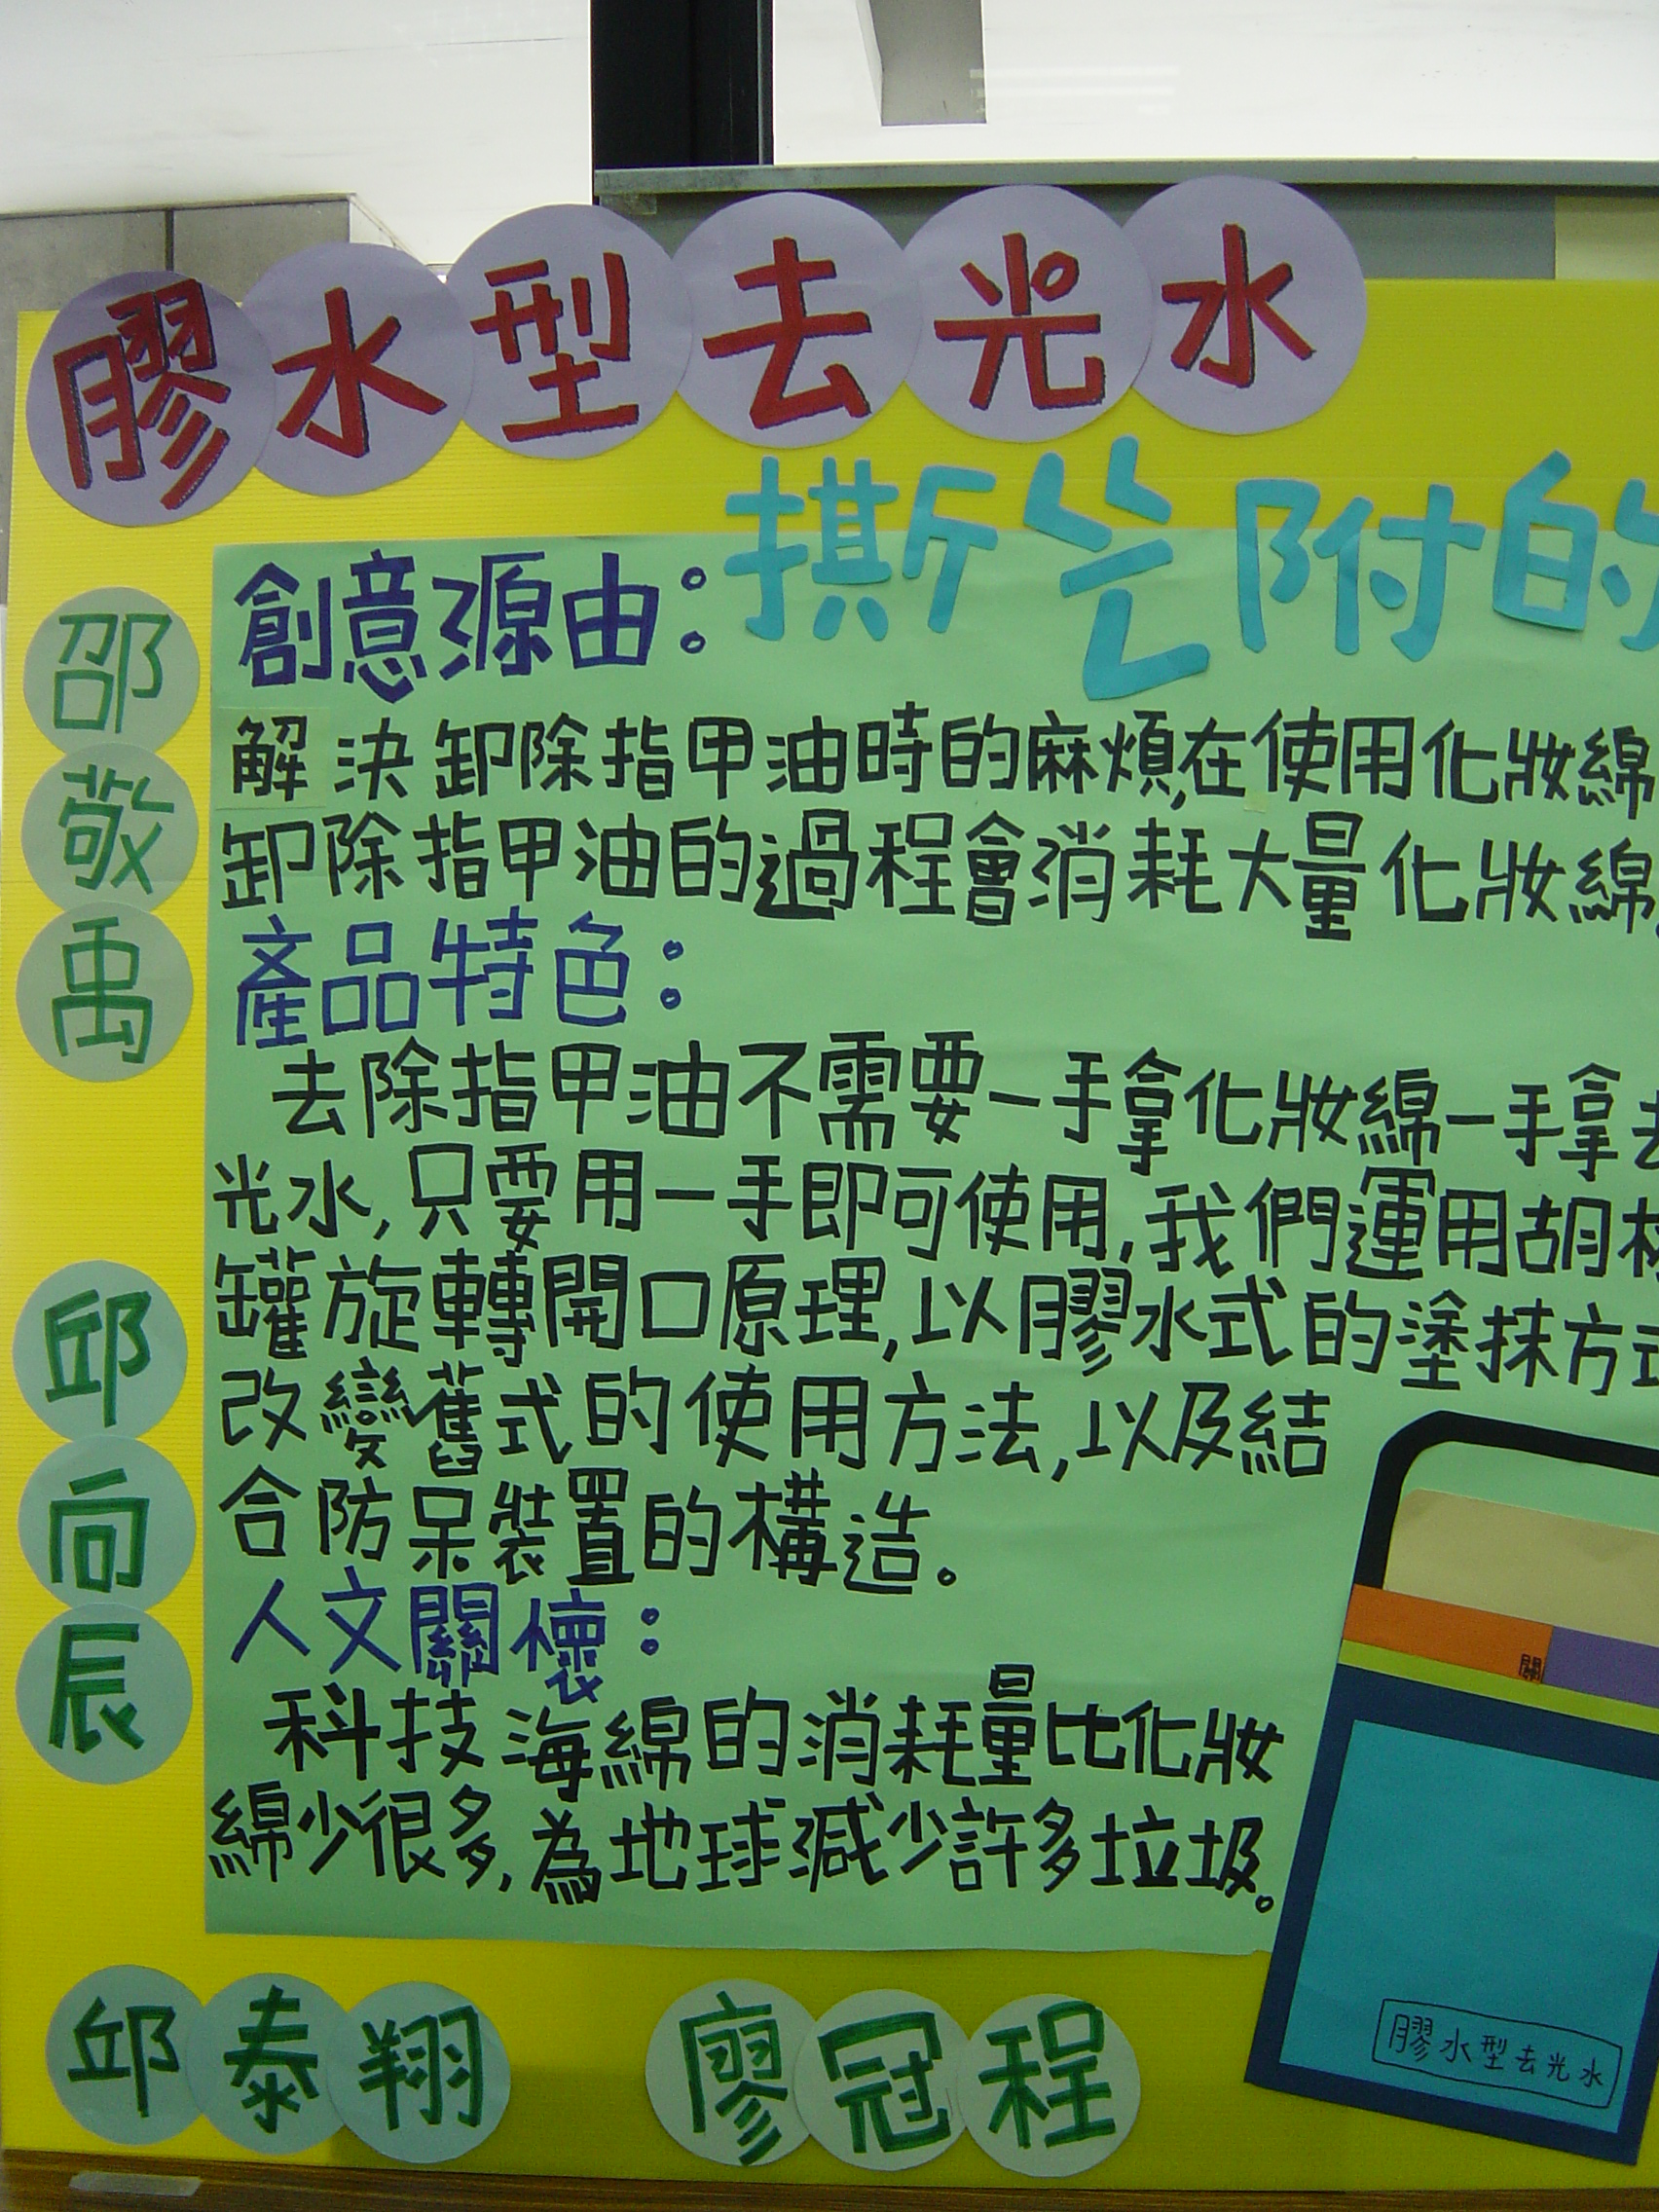 膠水型去光水
撕公附的
創意源由：
解決卸除指甲油時的麻煩,在使用化妝綿
卸除指甲油的過程會消耗大量化妝綿。
產品特色：
去除指甲油不需要一手拿化妝綿一手拿去
光水,只要用一手即可使用,我們運用胡椒
罐旋轉開口原理,以膠水式的塗抹方式
改變舊式的使用方法,以及結
合防呆裝置的構造。
人文關懷：
科技海綿的消耗量比化妝
綿少很多,為地球減少許多垃圾。
邵敬禹
邱向辰
邱泰翔
廖冠程
關
膠水型去光水